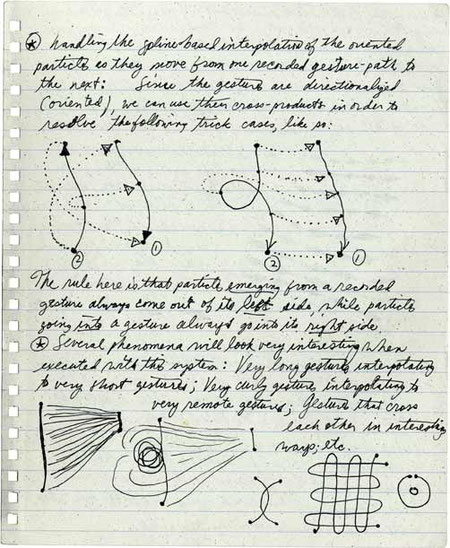 ✪ Handling the spline-based interpolation of the oriented
particles as they move from one recorded gesture-path to
the next: Since the gestures are directionalized
(oriented), we can use their cross-products in order to
resolve the following trick cases, like so:
2 1 2 1
The rule here is that particles emerging from a recorded
gesture always come out of its left side, while particles
going into a gesture always go into its right side.
✪ Several phenomena will look very interesting when
executed with this system: Very long gestures interpolating
to very short gestures; Very curly gestures interpolating to
very remote gestures; Gestures that cross
each other in interesting
ways; etc.